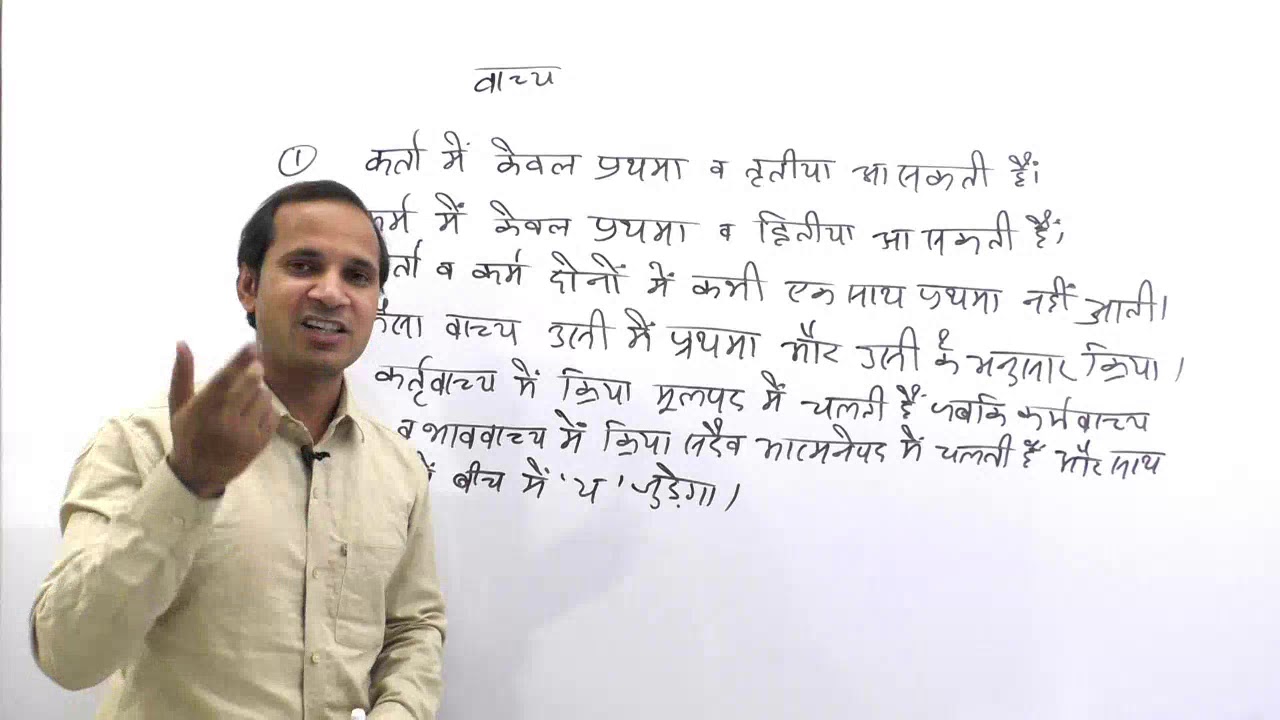 वाच्य
① कर्ता में केवल प्रथमा व तृतीया आ सकती है।
कर्म में केवल प्रथमा व द्वितीया आ सकती है,
र्ता व कर्म दोनों में कभी एक साथ प्रथमा नहीं आती।
वाच्य उसी में प्रथमा और उसी के अनुसार क्रिया।
कर्तृवाच्य में क्रिया मूलपद में चलती है जबकि कर्मवाच्य
व भाववाच्य में क्रिया सदैव आत्मनेपद में चलती है और साथ
में बीच में 'य' जुड़ेगा।